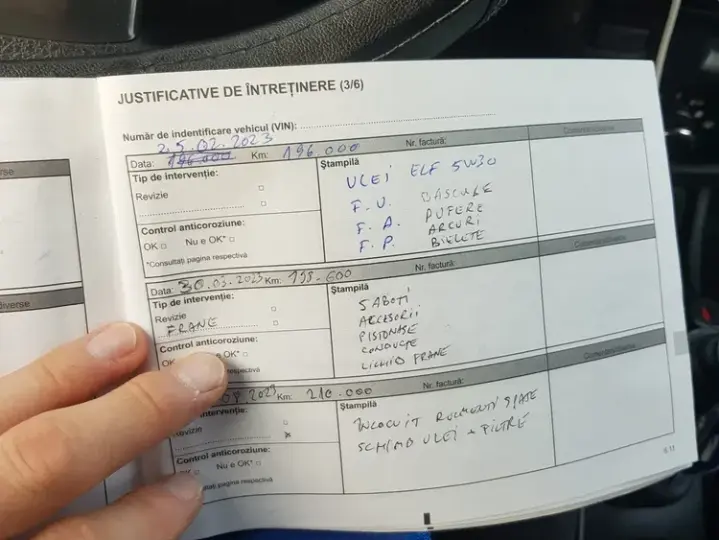 JUSTIFICATIVE DE ÎNTREȚINERE (3/6)
Număr de indentificare vehicul (VIN):
25.02.2023
Data: 196000 Km: 196.000 Nr. factură:
Tip de intervenție:
Revizie
Control anticoroziune:
OK Nu e OK*
*Consultați pagina respectivă
Ștampilă
ULEI ELF 5W30
F.U. BASCULE
F.A. PUFERE
ARCURI
F.P. BIELETE
Data: 30.03.2023 Km: 198-600 Nr. factură:
Tip de intervenție:
Revizie
FRANE
Control anticoroziune:
e OK*
respectivă
Ștampilă
SABOTI
ACCESORII
PISTONASE
CONDUCTE
LICHID FRANE
09.2023 Km: 210.000 Nr. factură:
intervenție:
Revizie
Control anticoroziune:
Nu e OK
pagina respectivă
Ștampilă
INLOCUIT RULMENTI SPATE
SCHIMB ULEI + FILTRE
diverse